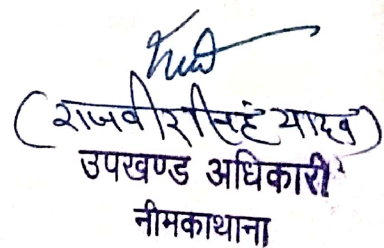 (राजवीरसिंह यादव)
उपखण्ड अधिकारी
नीमकाथाना